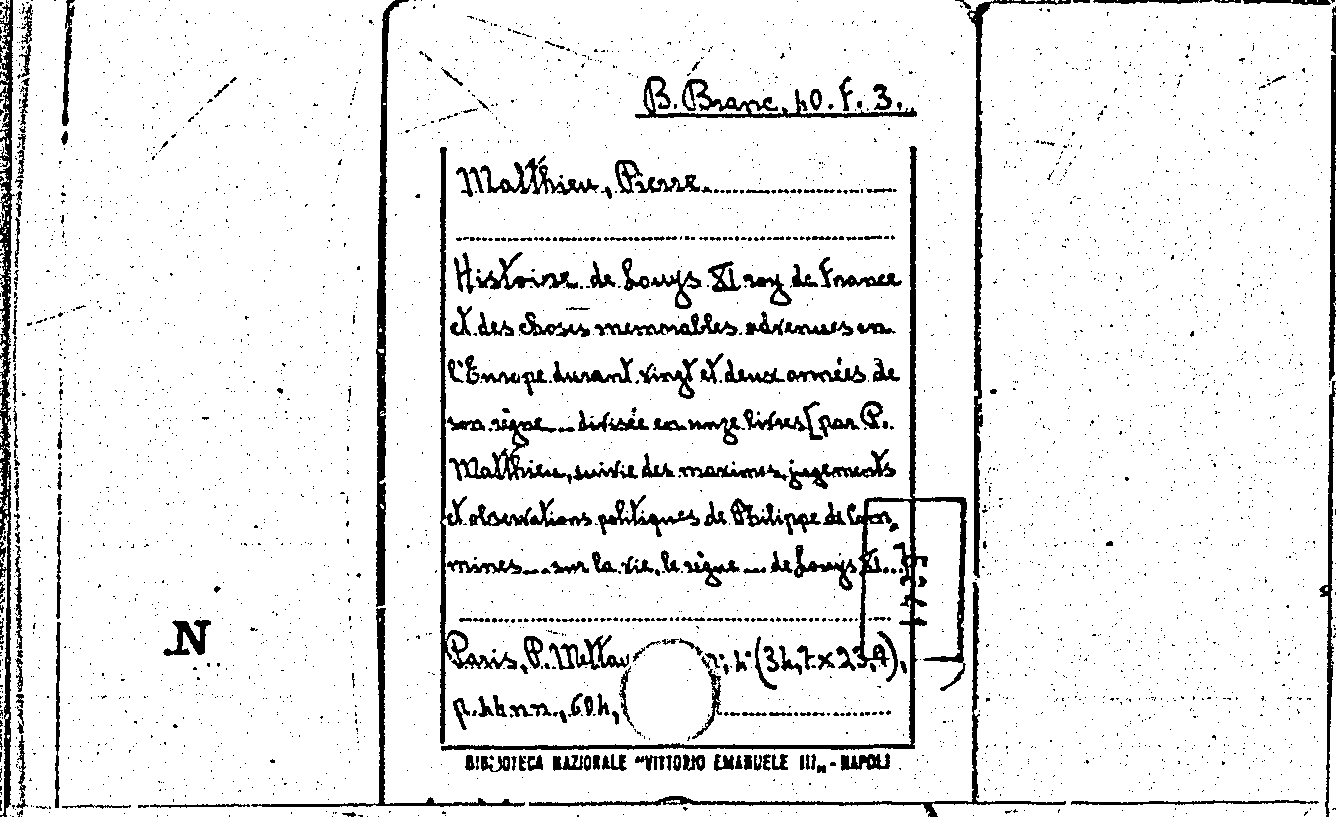 B. Branc. 40. F. 3.
Matthieu, Pierre.
Histoire de Louys XI roy de France
et des choses memorables advenues en
l'Europe durant vingt et deux années de
son règne... divisée en unze livres [par P.
Matthieu, suivie des maximes, jugements
et observations politiques de Philippe de Com-
mines... sur la vie, le règne... de Louys XI...
.N
Paris, P. Mettay 4° (34,7 x 23,9),
p. 44 nn., 604,
BIBLIOTECA NAZIONALE "VITTORIO EMANUELE III„ - NAPOLI